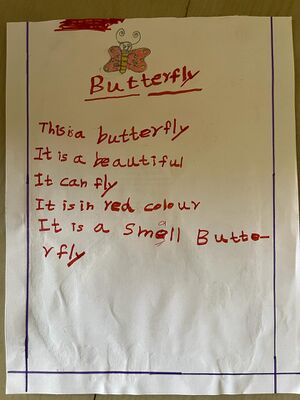 Butterfly
This is a butterfly
It is a beautiful
It can fly
It is in red colour
It is a small Butte-
rfly